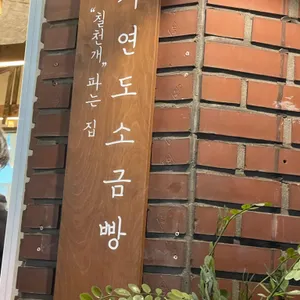 연도소금빵
"칠천개" 파는 집